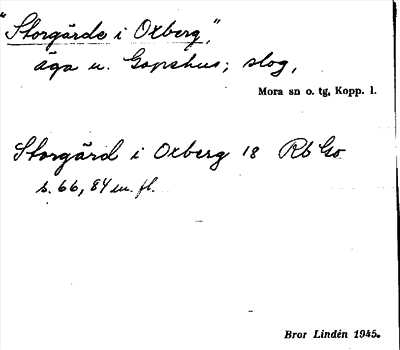 "Storgårde i Oxberg,"
äga u. Gopshus; slog,
Mora sn o. tg, Kopp. l.
Storgård i Oxberg 18 Rb Go
s. 66, 84 m. fl.
Bror Lindén 1945.